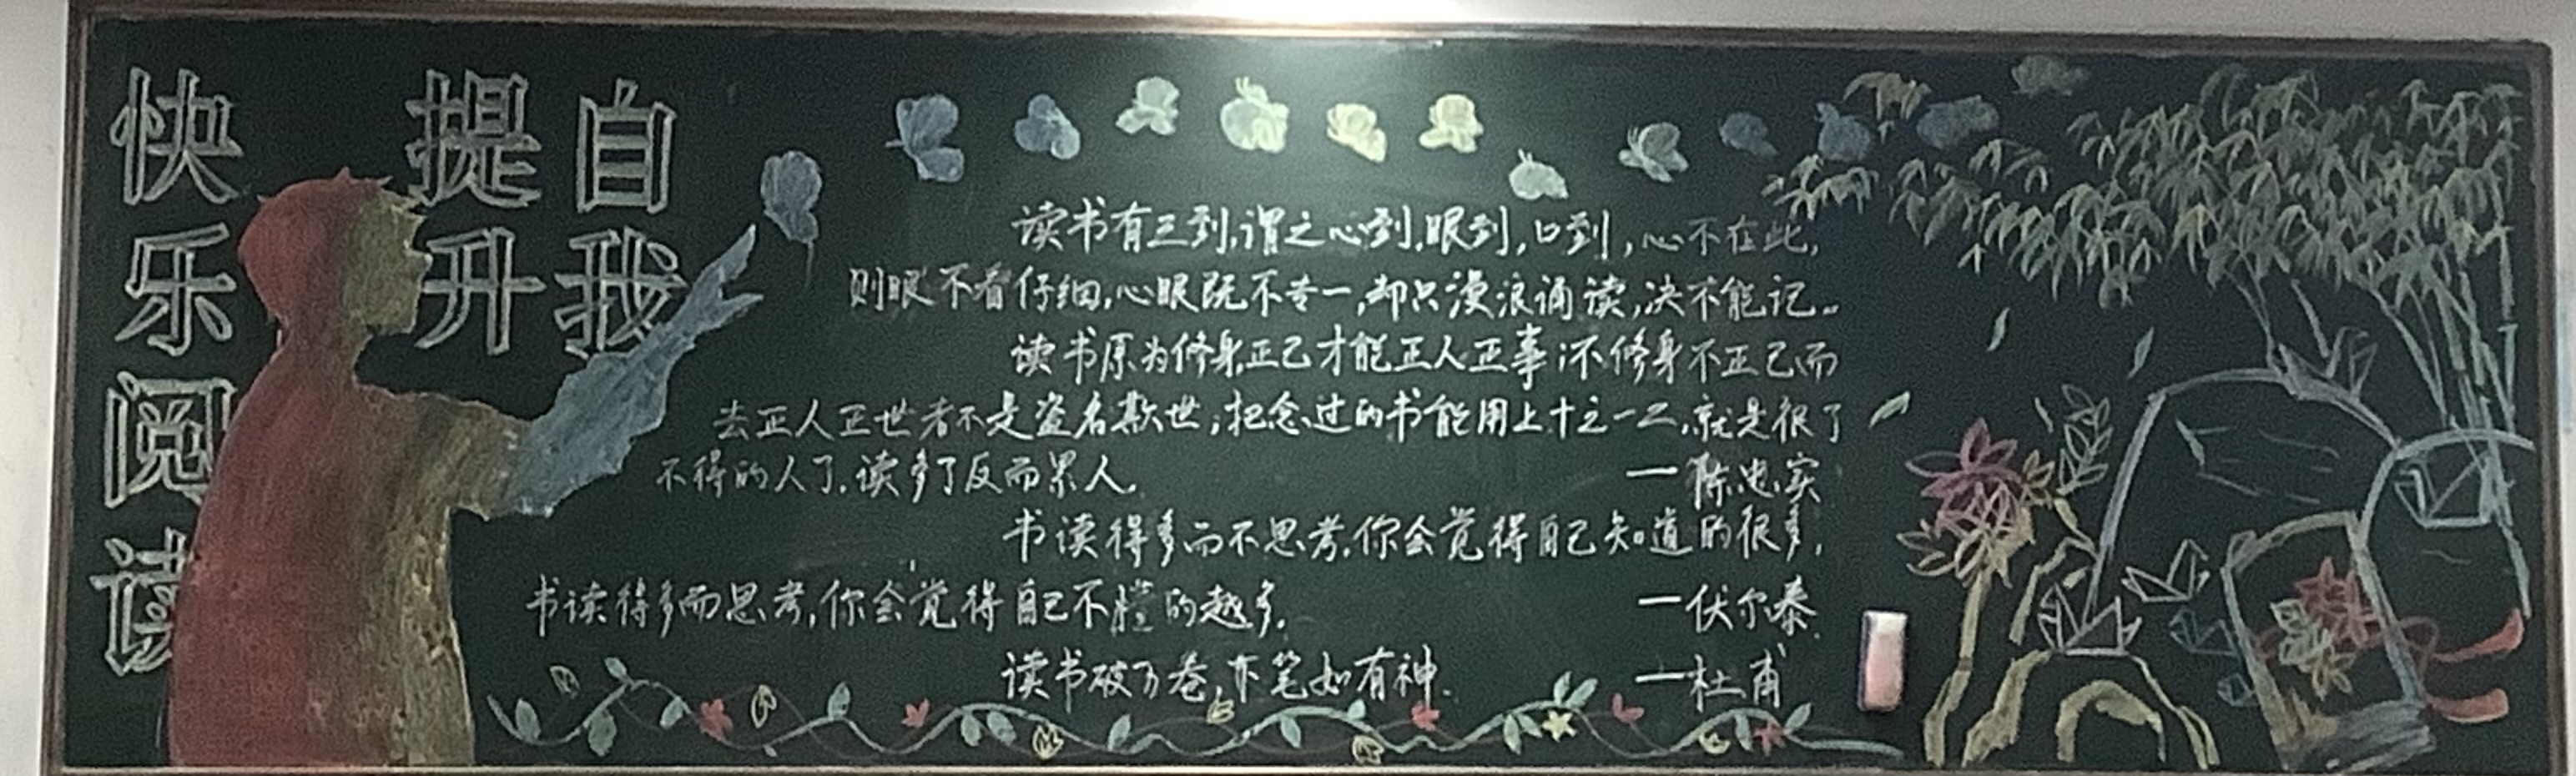 快乐阅读
提升
自我
读书有三到,谓之心到,眼到,口到,心不在此,
则眼不看仔细,心眼既不专一,却只漫浪诵读,决不能记。
读书原为修身,正己才能正人正事;不修身不正己而
去正人正世者不是盗名欺世;把念过的书能用上十之一二,就是很了
不得的人了.读多了反而累人.
—陈忠实
书读得多而不思考,你会觉得自己知道的很多,
书读得多而思考,你会觉得自己不懂的越多.
—伏尔泰.
读书破万卷,下笔如有神.
—杜甫